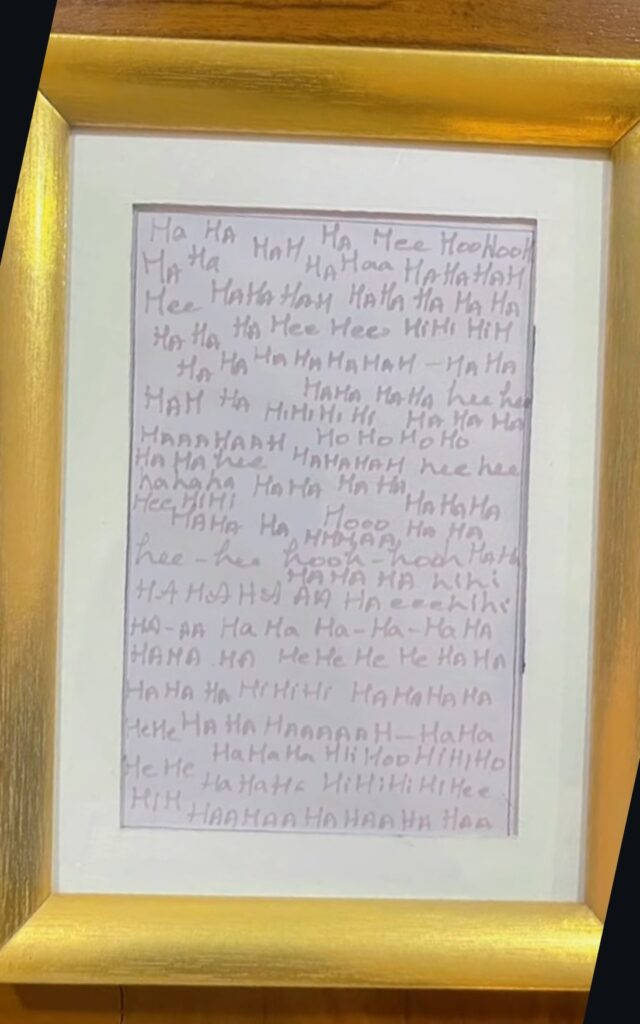 Ha HA HAH HA Hee HooHooH
HA Ha HAHaa HAHAHAH
Hee HAHAHAH HAHA HA HA HA
HA HA HA Hee Hee HiHi HiH
HA HA HAHAHAHAH - HAHA
HAHA HAHA hee hee
HAH HA HiHiHiHi HA HA HA
HAAAHAAH HOHOHOHO
HAHA hee HAHAHAH hee hee
hahaha HAHA HAHA
Hee HiHi HAHAHA
HAHA HA Hooo HA HA
HHHAA
hee-hee hooh-hooh HaHa
HAHA HA hihi
HAHAHA AA HA eeehihi
HA-AA HaHa Ha-Ha-HaHA
HAHA HA HeHe He He HAHA
HAHA HA HiHiHi HAHAHAHA
HeHe HAHA HAAAAAH-HaHa
HaHaHa HiiHooHiHiHo
HeHe HaHaHa HiHiHiHiHee
HiH HAAHAA HAHAA HA HAA